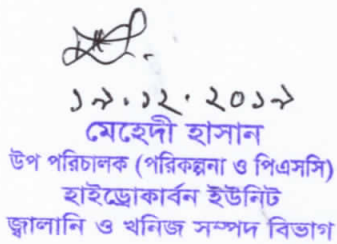 ১৯.১২.২০১৯
মেহেদী হাসান
উপ পরিচালক (পরিকল্পনা ও পিএসসি)
হাইড্রোকার্বন ইউনিট
জ্বালানি ও খনিজ সম্পদ বিভাগ